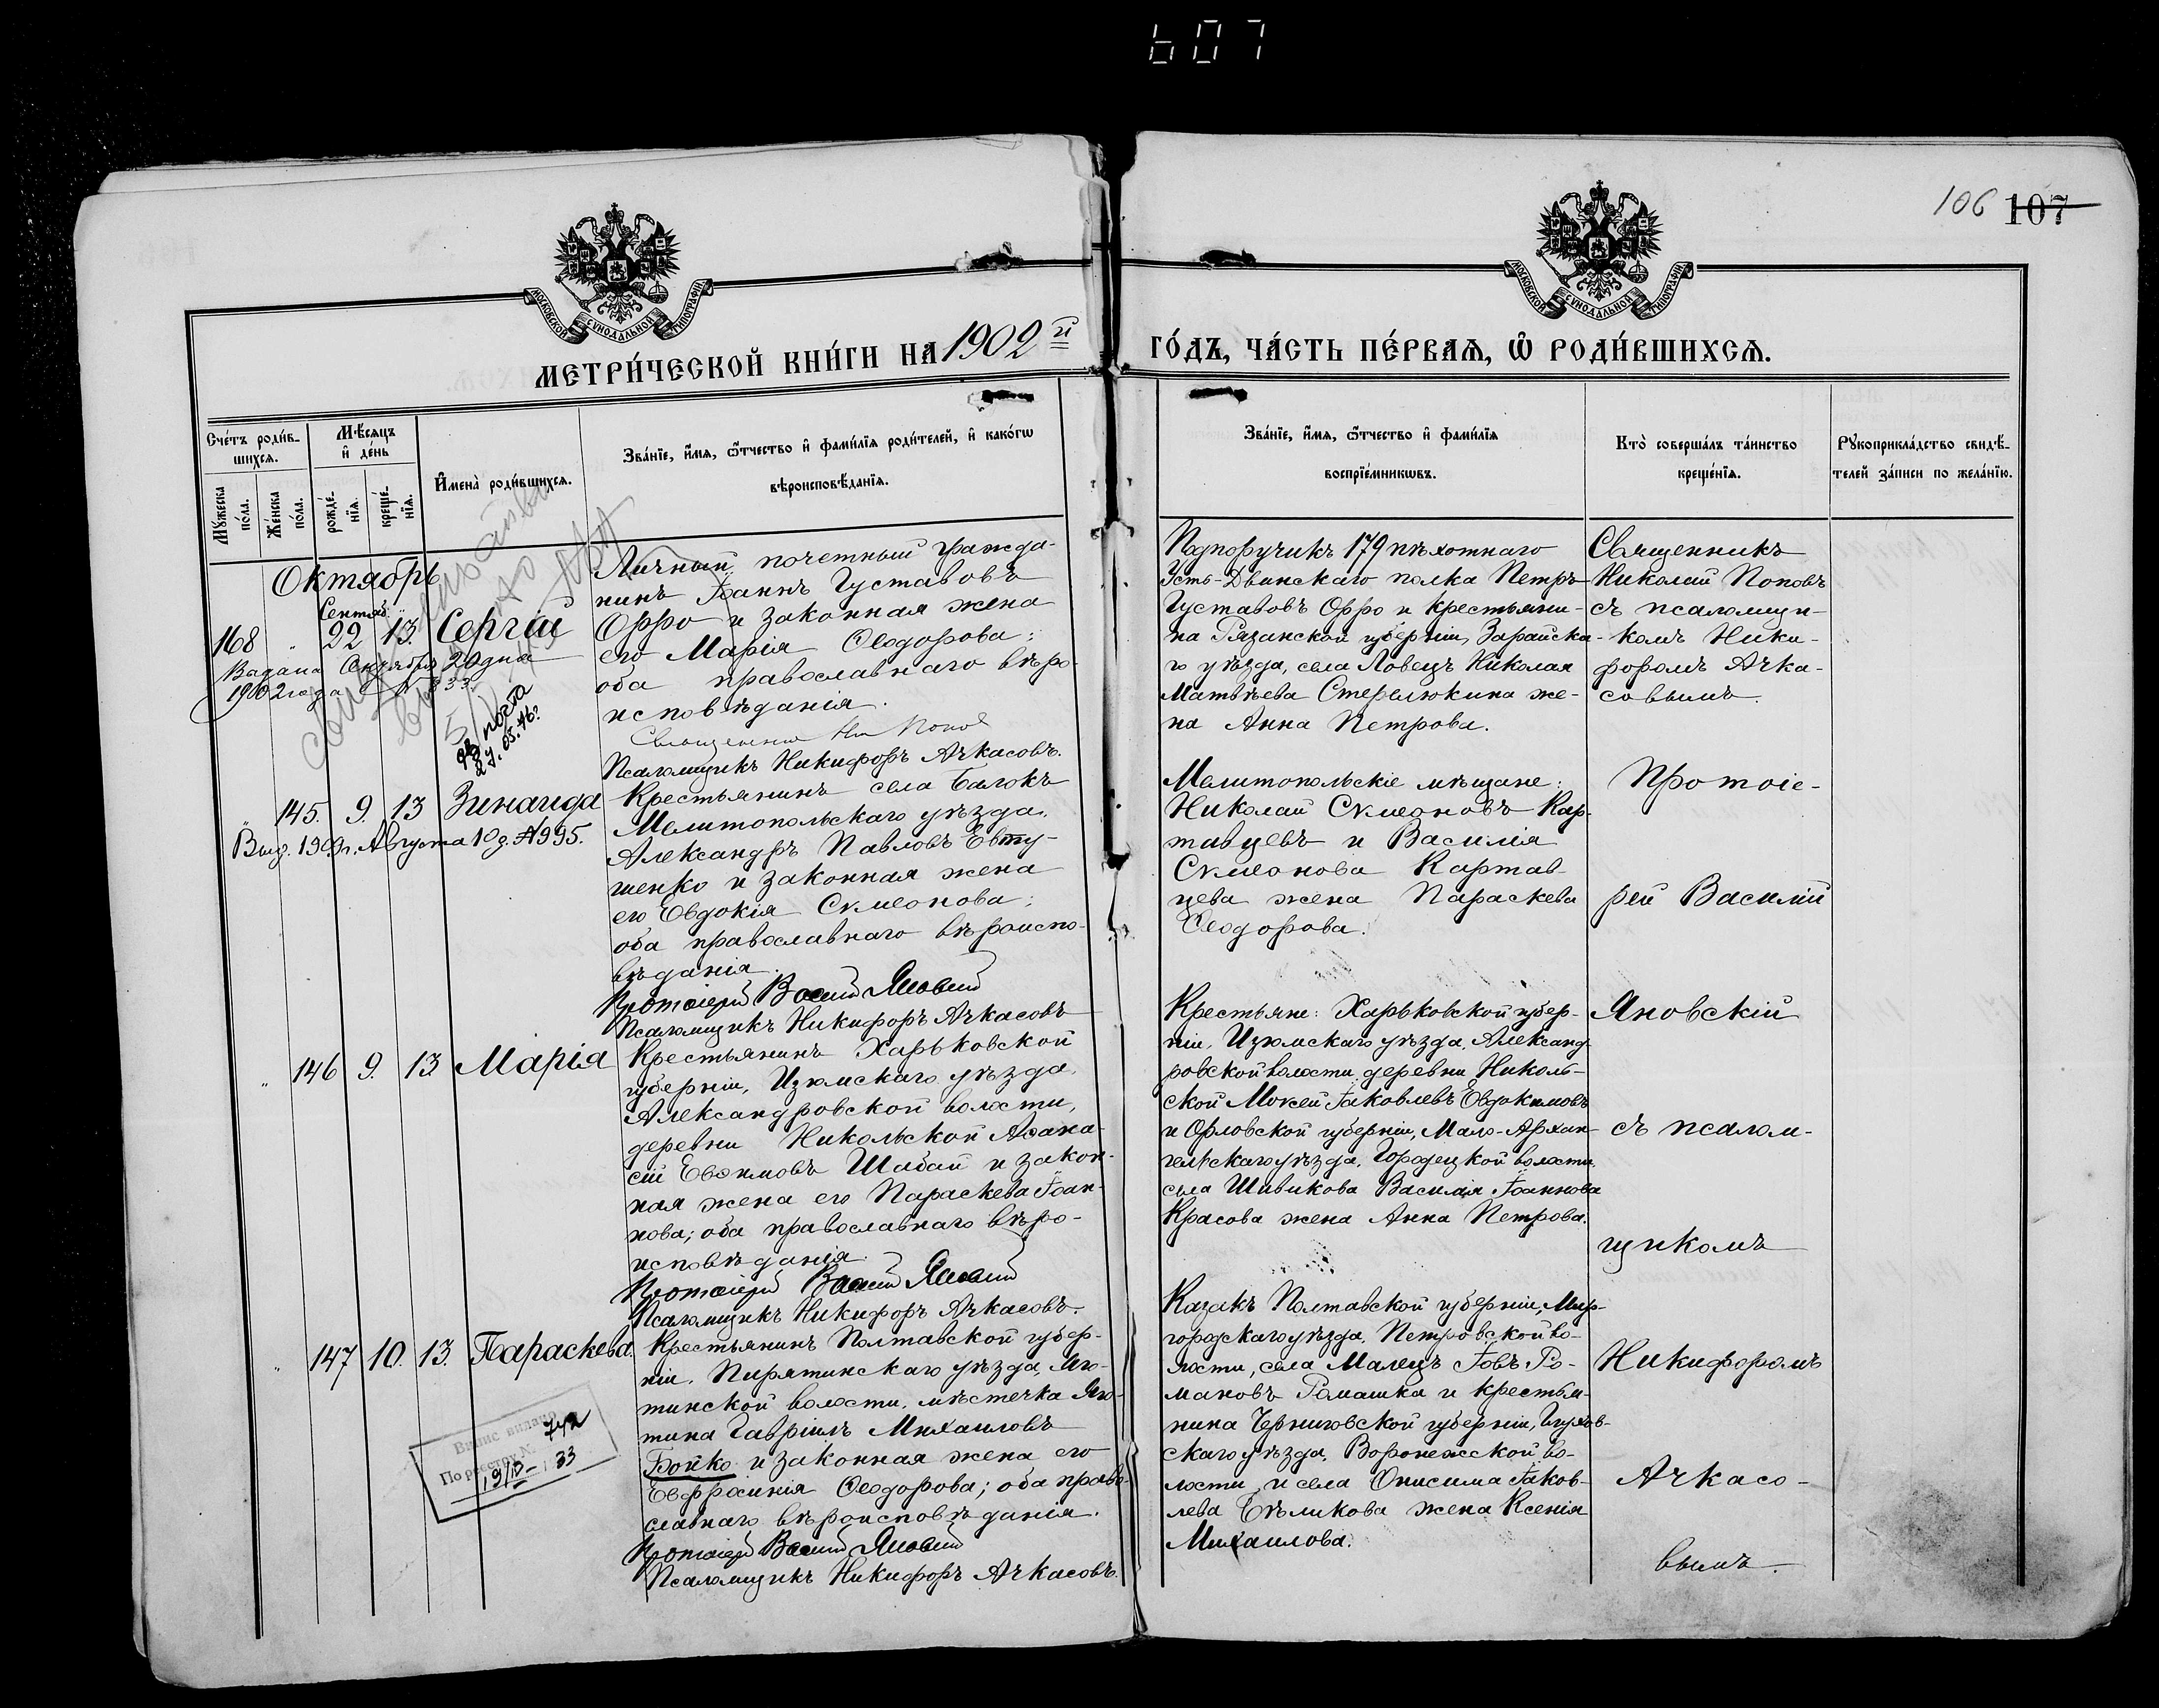 607
106 107
МОСКОВСКОЙ СѴНОДАЛЬНОЙ ТИПОГРАФІИ
МОСКОВСКОЙ СѴНОДАЛЬНОЙ ТИПОГРАФІИ
МЕТРИ́ЧЕСКОЙ КНИ́ГИ НА 1902й
ГО́ДЪ, ЧА́СТЬ ПЕ́РВАѦ, Ѽ РОДИ́ВШИХСѦ.
Сче́тъ роди́в-
шихсѧ.
Мѣ́сѧцъ
и҆ де́нь
Мꙋ́жеска
по́ла.
Же́нска
по́ла.
рожде́-
нїѧ.
креще́-
нїѧ.
И҆мена̀ роди́вшихсѧ.
Зва́нїе, и҆́мѧ, ѻ҆́тчество и҆ фами́лїѧ роди́телей, и҆ како́гѡ
вѣроисповѣ́данїѧ.
Зва́нїе, и҆́мѧ, ѻ҆́тчество и҆ фами́лїѧ
воспрїе́мникѡвъ.
Кто̀ соверша́лъ та́инство
креще́нїѧ.
Рꙋкоприкла́дство свидѣ́-
телей за́писи по жела́нїю.
Октябрь
Сентяб.
168 " 22 13 Сергій
Выдана Октября 20 дня
1902 года № 833
почта
27.05.46г
Личный почетный гражда-
нинъ Іоаннъ Густавовъ
Орро и законная жена
его Марія Ѳеодорова;
оба православнаго вѣро-
исповѣданія.
Священникъ Ник Попов
Псаломщикъ Никифоръ Ачкасовъ.
Подпоручикъ 179 пѣхотнаго
Усть-Двинскаго полка Петръ
Густавовъ Орро и крестьяни-
на Рязанской губерніи, Зарайска-
го уѣзда, села Ловецъ Николая
Матвѣева Стерлюкина же-
на Анна Петрова.
Священникъ
Николай Поповъ
съ псаломщи-
комъ Ники-
форомъ Ачка-
совымъ.
" 145. 9. 13 Зинаида
Выд. 1909г. Августа 10 д. №995.
Крестьянинъ села Балокъ
Мелитопольскаго уѣзда,
Александръ Павловъ Евту-
шенко и законная жена
его Евдокія Сѵмеонова;
оба православнаго вѣроиспо-
вѣданія.
Протоіерей Василій Яновскій
Псаломщикъ Никифоръ Ачкасовъ
Мелитопольскіе мѣщане:
Николай Сѵмеоновъ Кар-
тавцевъ и Василія
Сѵмеонова Картав-
цева жена Параскева
Ѳеодорова.
Протоіе-
рей Василій
Яновскій
съ псалом-
щикомъ
Никифоромъ
Ачкасо-
вымъ.
" 146 9. 13 Марія
Крестьянинъ Харьковской
губерніи, Изюмскаго уѣзда,
Александровской волости,
деревни Никольской Аѳана-
сій Евѳимовъ Шабай и закон-
ная жена его Параскева Іоан-
нова; оба православнаго вѣро-
исповѣданія.
Протоіерей Василій Яновскій
Псаломщикъ Никифоръ Ачкасовъ.
Крестьяне: Харьковской губер-
ніи, Изюмскаго уѣзда, Александ-
ровской волости деревни Николь-
ской Моисей Іаковлевъ Евдокимовъ
и Орловской губерніи, Мало-Архан-
гельскаго уѣзда, Городецкой волости,
села Шивикова Василія Іоаннова
Красова жена Анна Петрова.
" 147 10. 13. Параскева.
Випис видано
По реєстру N. 742
19/IV-33
Крестьянинъ Полтавской губер-
ніи, Пирятинскаго уѣзда, Яго-
тинской волости, мѣстечка Яго-
тина Гавріилъ Михаиловъ
Бойко и законная жена его
Евфросинія Ѳеодорова; оба право-
славнаго вѣроисповѣданія.
Протоіерей Василій Яновскій
Псаломщикъ Никифоръ Ачкасовъ.
Казакъ Полтавской губерніи, Мир-
городскаго уѣзда, Петровской во-
лости, села Малецъ Іовъ Ро-
мановъ Ромашка и крестья-
нина Черниговской губерніи, Глухов-
скаго уѣзда, Воронежской во-
лости и села Онисима Іаков-
лева Бѣликова жена Ксенія
Михаилова.